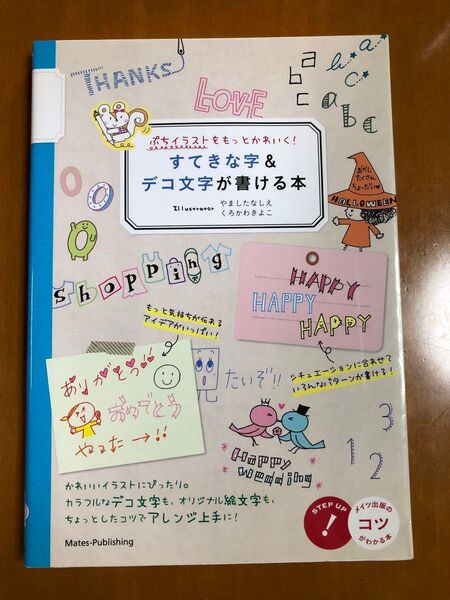 THANKS
LOVE
abc
abc
a
b
c
ぷちイラストをもっとかわいく!
すてきな字&
デコ文字が書ける本
Illustrator やましたなしえ
くろかわきよこ
おかし
たくさん
ちょーだい♥
HALLOWEEN
0
0
0
0
shopping
HAPPY
HAPPY
HAPPY
もっと気持ちが伝わる
アイデアがいっぱい!
シチュエーションに合わせて
いろんなパターンが書ける!
ありがとう!!
おめでとう
やるた→!!
たいぞ!!
3
1 2
Happy
Wedding
かわいいイラストにぴったり。
カラフルなデコ文字も、オリジナル絵文字も、
ちょっとしたコツでアレンジ上手に!
Mates-Publishing
STEP UP
!
メイツ出版の
コツ
がわかる本